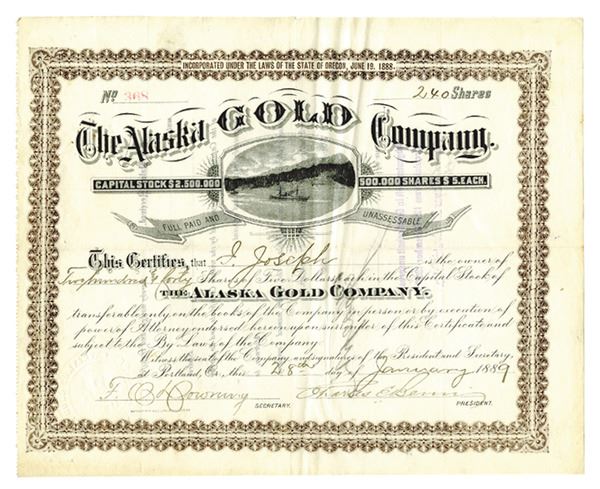 INCORPORATED UNDER THE LAWS OF THE STATE OF OREGON, JUNE 19, 1888.
No 368 240 Shares
The Alaska GOLD Company.
CAPITAL STOCK $2,500,000 500,000 SHARES $5. EACH.
FULL PAID AND UNASSESSABLE
This Certifies, that I. Joseph is the owner of
Two hundred & forty Shares of Five Dollars each in the Capital Stock of
THE ALASKA GOLD COMPANY.
transferable only on the books of the Company in person or by execution of
power of Attorney endorsed hereon upon surrender of this Certificate and
subject to the By Laws of the Company
Witness the seal of the Company and signatures of the President and Secretary,
at Portland, Or. this 28th day of January 1889
F. Downing Charles
SECRETARY. PRESIDENT.